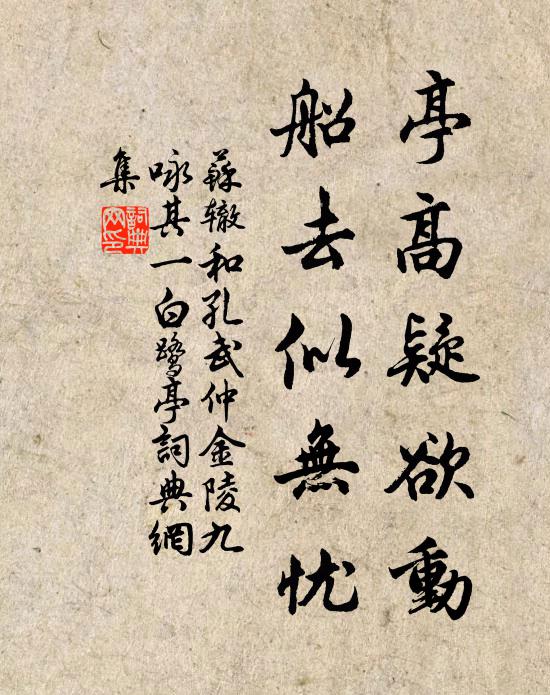 亭高疑欲動
船去似無忧
蘇辙和孔武仲金陵九
咏其一白鹭亭詞典網
集
詞典
网印